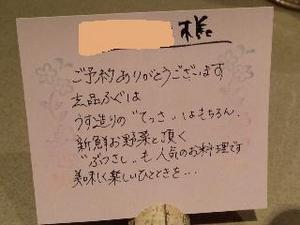 様
ご予約ありがとうございます
玄品ふぐは
うす造りの"てっさ"はもちろん、
新鮮お野菜と頂く
"ぶつさし"も人気のお料理です
美味しく楽しいひとときを…